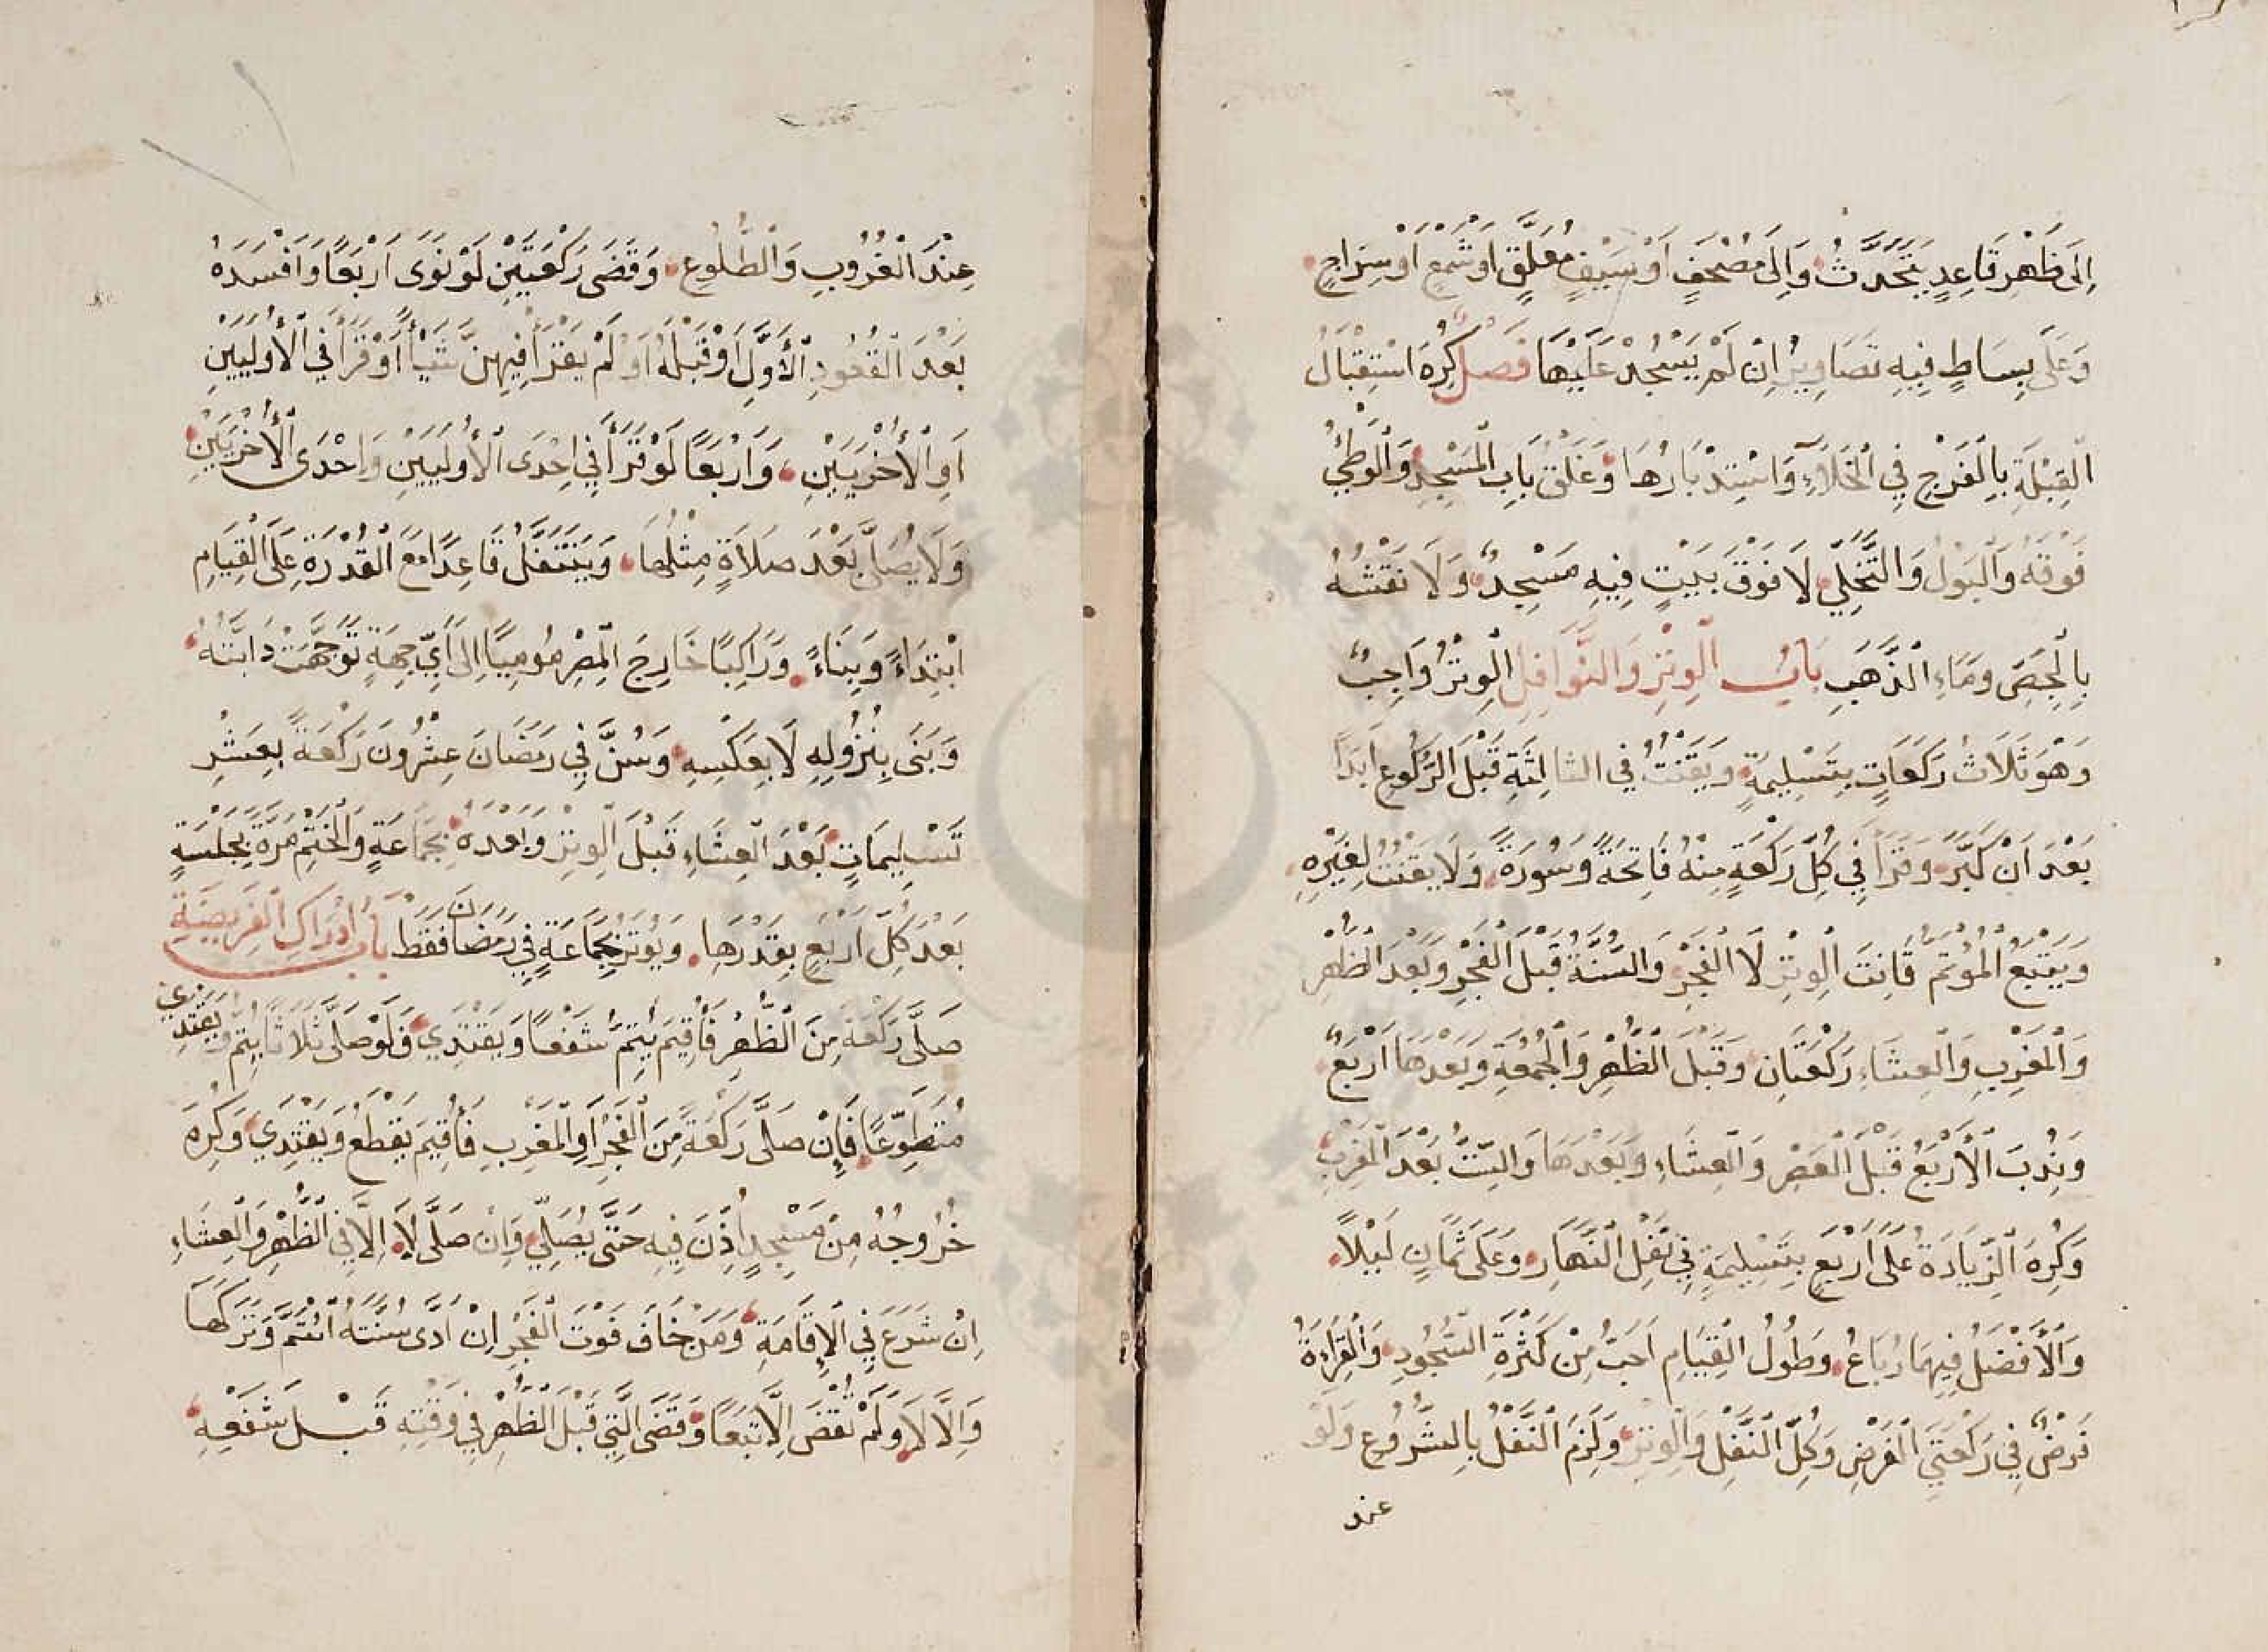 اِلَى ظَهْرِ قَاعِدٍ يَتَحَدَّثُ وَاِلَى مُصْحَفٍ اَوْ سَيْفٍ مُعَلَّقٍ اَوْ شَمْعٍ اَوْ سِرَاجٍ
وَعَلَى بِسَاطٍ فِيهِ تَصَاوِيرُ اِنْ لَمْ يَسْجُدْ عَلَيْهَا فَصْلٌ كُرِهَ اسْتِقْبَالُ
الْقِبْلَةِ بِالْفَرْجِ فِي الْخَلَاءِ وَاسْتِدْبَارُهَا وَغَلْقُ بَابِ الْمَسْجِدِ وَالْوَطْئُ
فَوْقَهُ وَالْبَوْلُ وَالتَّخَلِّي لَا فَوْقَ بَيْتٍ فِيهِ مَسْجِدٌ وَلَا نَقْشُهُ
بِالْجِصِّ وَمَاءِ الذَّهَبِ بَابُ الْوِتْرِ وَالنَّوَافِلِ الْوِتْرُ وَاجِبٌ
وَهْوَ ثَلَاثُ رَكَعَاتٍ بِتَسْلِيمَةٍ وَيَقْنُتُ فِي الثَالِثَةِ قَبْلَ الرُّكُوعِ اَبَدًا
بَعْدَ اَنْ كَبَّرَ وَقَرَأَ فِي كُلِّ رَكْعَةٍ مِنْهُ فَاتِحَةً وَسُورَةً وَلَا يَقْنُتُ لِغَيْرِهِ
وَيَتْبَعُ الْمُؤْتَمُّ قَانِتَ الْوِتْرِ لَا الْفَجْرِ وَالسُّنَّةُ قَبْلَ الْفَجْرِ وَبَعْدَ الظُّهْرِ
وَالْمَغْرِبِ وَالْعِشَاءِ رَكْعَتَانِ وَقَبْلَ الظُّهْرِ وَالْجُمُعَةِ وَبَعْدَهَا اَرْبَعٌ
وَنُدِبَ الْأَرْبَعُ قَبْلَ الْعَصْرِ وَالْعِشَاءِ وَبَعْدَهَا وَالسِّتُّ بَعْدَ الْمَغْرِبِ
وَكُرِهَ الزِّيَادَةُ عَلَى اَرْبَعٍ بِتَسْلِيمَةٍ فِي نَفْلِ النَّهَارِ وَعَلَى ثَمَانٍ لَيْلًا
وَالْأَفْضَلُ فِيهِمَا رُبَاعُ وَطُولُ الْقِيَامِ اَحَبُّ مِنْ كَثْرَةِ السُّجُودِ وَالْقِرَاءَةُ
فَرْضٌ فِي رَكْعَتَيِ الْفَرْضِ وَكُلِّ النَّفْلِ وَالْوِتْرِ وَلَزِمَ النَّفْلُ بِالشُّرُوعِ وَلَوْ
عند
عِنْدَ الْغُرُوبِ وَالْطُّلُوعِ وَقَضَى رَكْعَتَيْنِ لَوْ نَوَى اَرْبَعًا وَاَفْسَدَهُ
بَعْدَ الْقُعُودِ الْأَوَّلِ اَوْ قَبْلَهُ اَوْ لَمْ يَقْرَأْ فِيهِنَّ شَيْأً اَوْ قَرَأَ فِي الْأُولَيَيْنِ
اَوِ الْأُخْرَيَيْنِ وَاَرْبَعًا لَوْ قَرَأَ فِي اِحْدَى الْأُولَيَيْنِ وَاِحْدَى الْأُخْرَيَيْنِ
وَلَا يُصَلَّى بَعْدَ صَلَاةٍ مِثْلُهَا وَيَتَنَفَّلُ قَاعِدًا مَعَ الْقُدْرَةِ عَلَى الْقِيَامِ
ابْتِدَاءً وَبِنَاءً وَرَاكِبًا خَارِجَ الْمِصْرِ مُومِيًا اِلَى اَيِّ جِهَةٍ تَوَجَّهَتْ دَابَّتُهُ
وَبَنَى بِنُزُولِهِ لَا بِعَكْسِهِ وَسُنَّ فِي رَمَضَانَ عِشْرُونَ رَكْعَةً بِعَشْرِ
تَسْلِيمَاتٍ بَعْدَ الْعِشَاءِ قَبْلَ الْوِتْرِ وَبَعْدَهُ بِجَمَاعَةٍ وَالْخَتْمِ مَرَّةً بِجَلْسَةٍ
بَعْدَ كُلِّ اَرْبَعٍ بِقَدْرِهَا وَيُوتَرُ بِجَمَاعَةٍ فِي رَمَضَانَ فَقَطْ بَابُ اِدْرَاكِ الْفَرِيضَةِ
صَلَّى رَكْعَةً مِنَ الْظُّهْرِ فَأُقِيمَ يُتِمُّ شَفْعًا وَيَقْتَدِي فَلَوْ صَلَّى ثَلَاثًا يُتِمُّ وَيَقْتَدِي
مُتَطَوِّعًا فَإِنْ صَلَّى رَكْعَةً مِنَ الْفَجْرِ اَوِ الْمَغْرِبِ فَأُقِيمَ يَقْطَعُ وَيَقْتَدِي وَكُرِهَ
خُرُوجُهُ مِنْ مَسْجِدٍ اُذِّنَ فِيهِ حَتَّى يُصَلِّي وَاِنْ صَلَّى لَا اِلَّا فِي الْظُّهْرِ وَالْعِشَاءِ
اِنْ شَرَعَ فِي الْإِقَامَةِ وَمَنْ خَافَ فَوْتَ الْفَجْرِ اِنْ اَدَّى سُنَّتَهُ ائْتَمَّ وَتَرَكَهَا
وَاِلَّا لَا وَلَمْ تُقْضَ اِلَّا تَبَعًا وَقَضَى الَّتِي قَبْلَ الظُّهْرِ فِي وَقْتِهِ قَبْلَ شَفْعِهِ